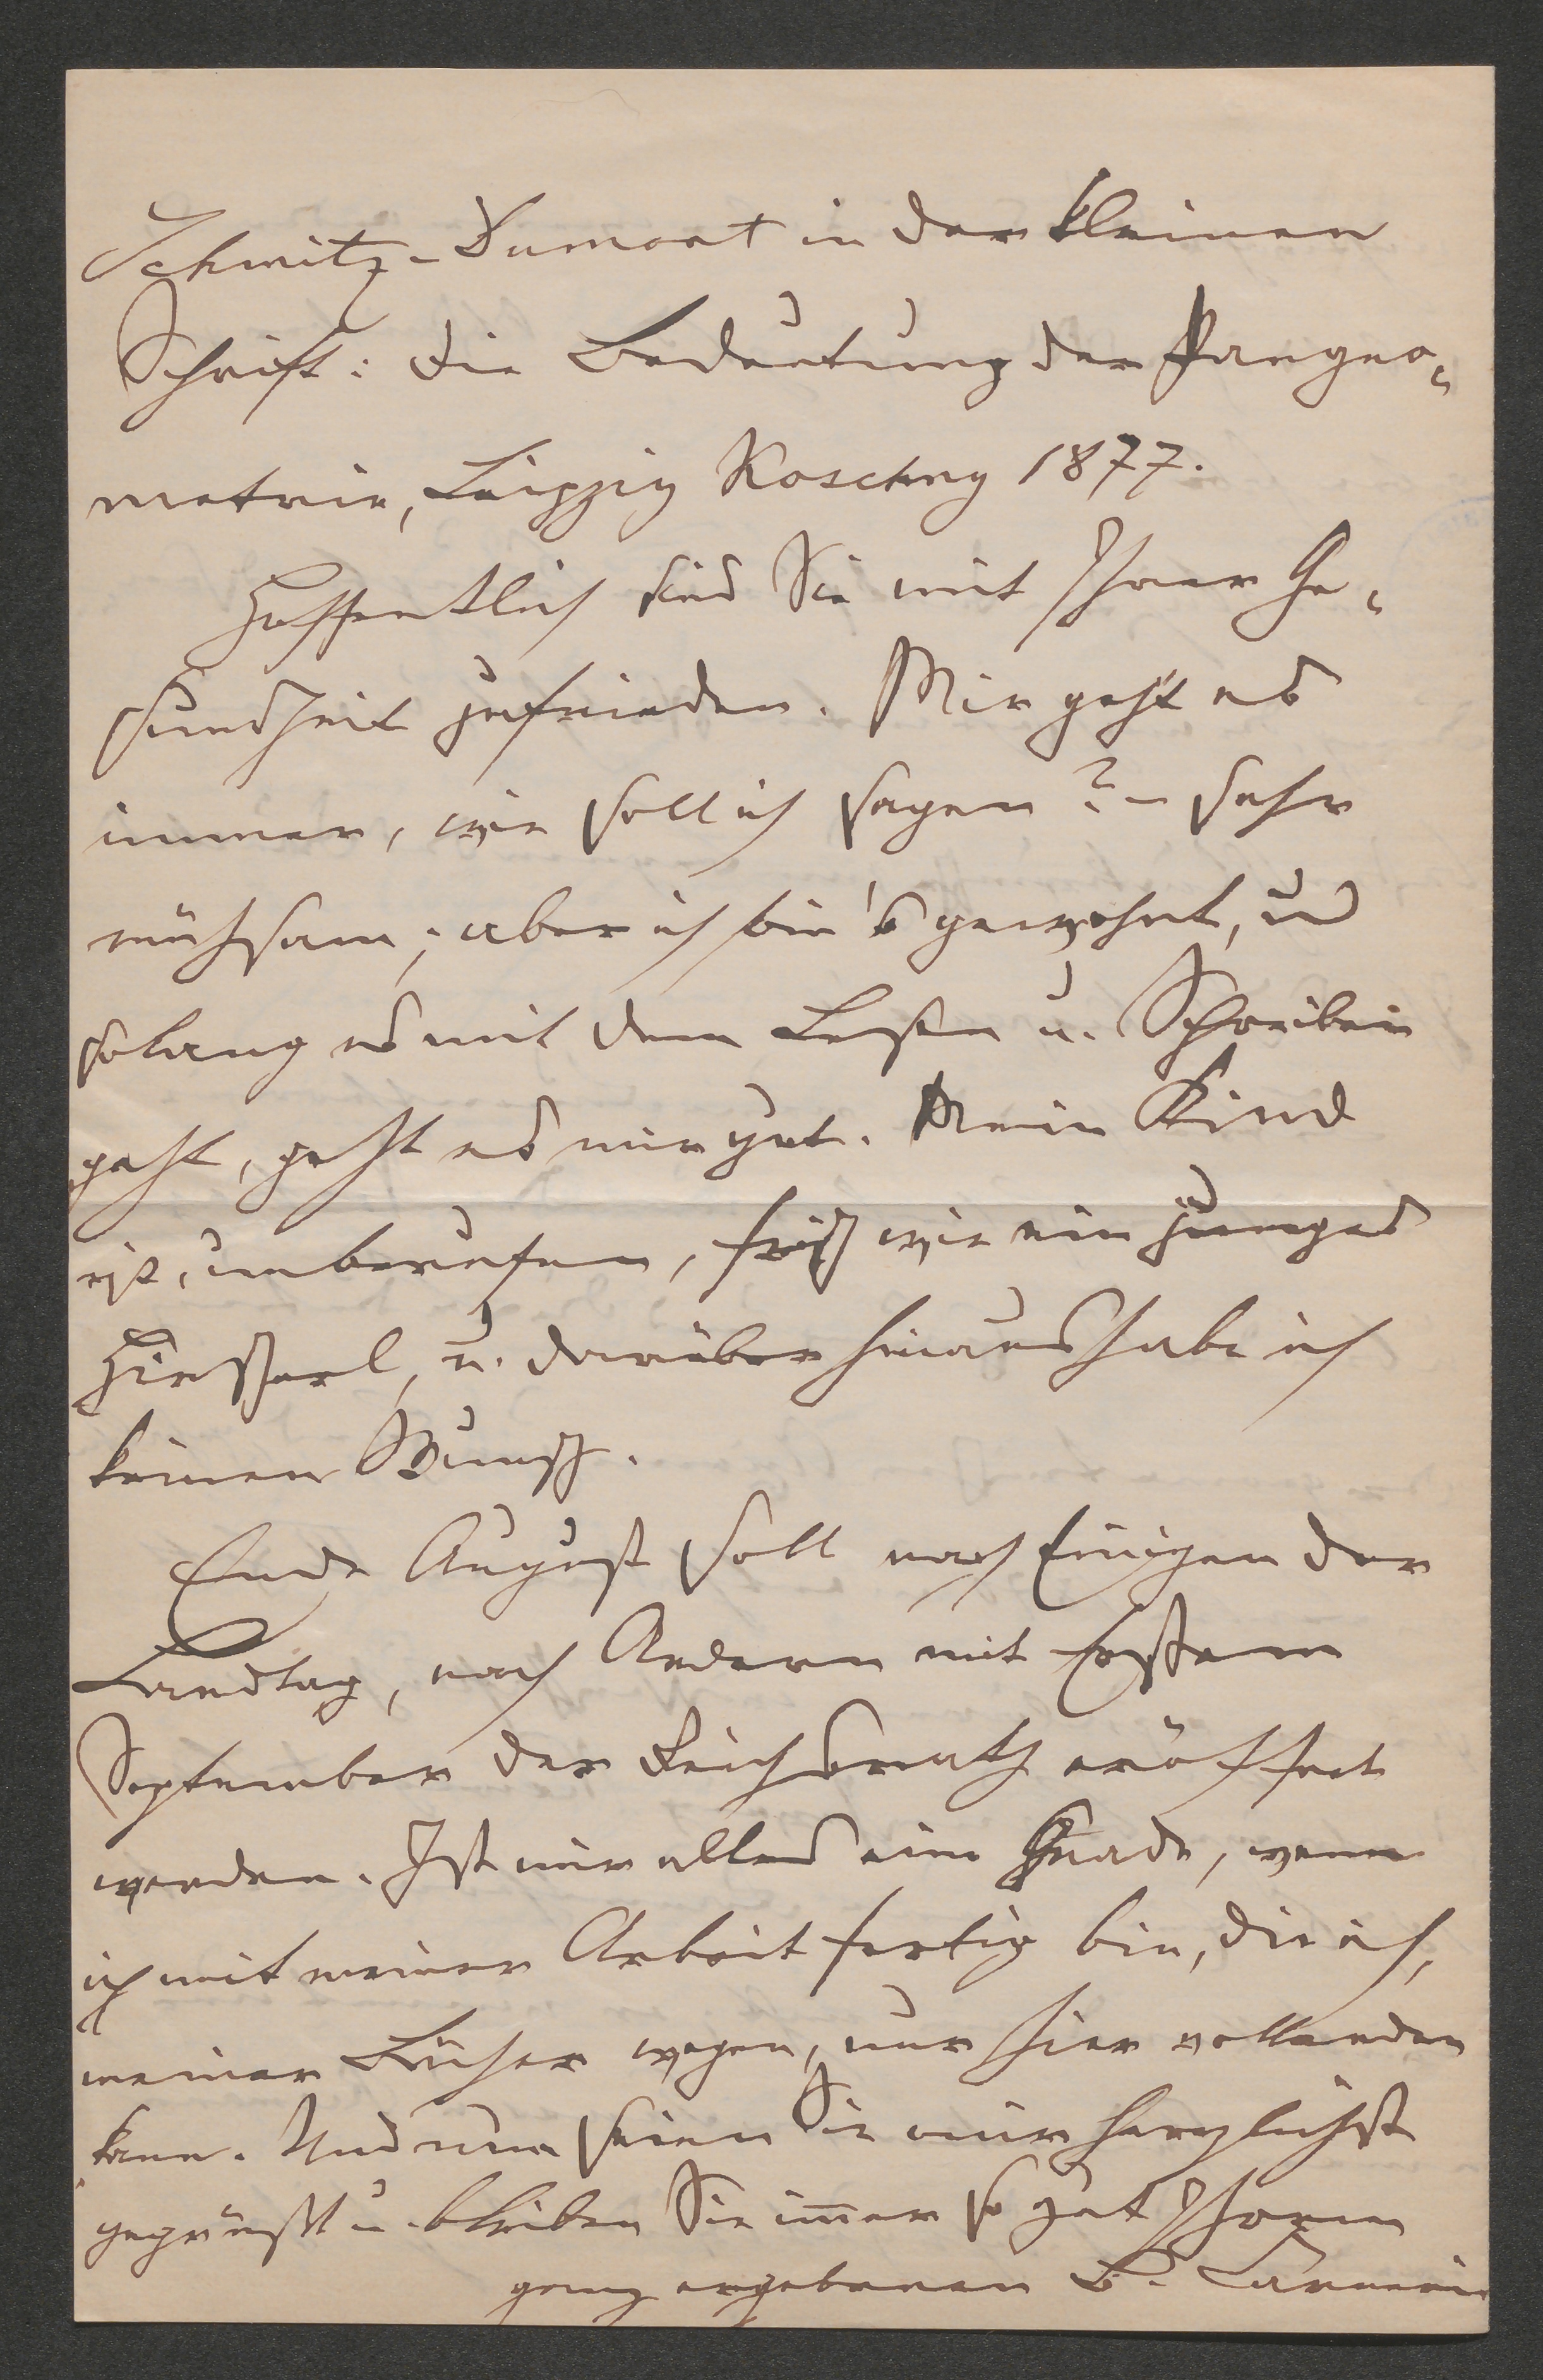 Schmitz-Dumont in der kleinen
Schrift: die Bedeutung der Pangeo-
metrie, Leipzig Koschny 1877.
Hoffentlich sind Sie mit Ihrer Ge-
sundheit zufrieden. Mir geht es
immer, wie soll ich sagen? – sehr
mühsam; aber ich bin's gewohnt, und
solang es mit dem Lesen u. Schreiben
geht, geht es mir gut. Mein Kind
ist, unberufen, frisch wie ein junges
Hirscherl, u. darüber hinaus habe ich
keinen Wunsch.
Ende August soll nach Einigen der
Landtag, nach Andern mit Erstem
September der Reichsrath eröffnet
werden. Ist mir alles eine Gnade, wenn
ich mit meiner Arbeit fertig bin, die ich,
meiner Bücher wegen, nur hier vollenden
kann. Und nun seien Sie mir herzlichst
gegrüsst u. bleiben Sie immer so gut Ihrem
ganz ergebenen B. Carneri